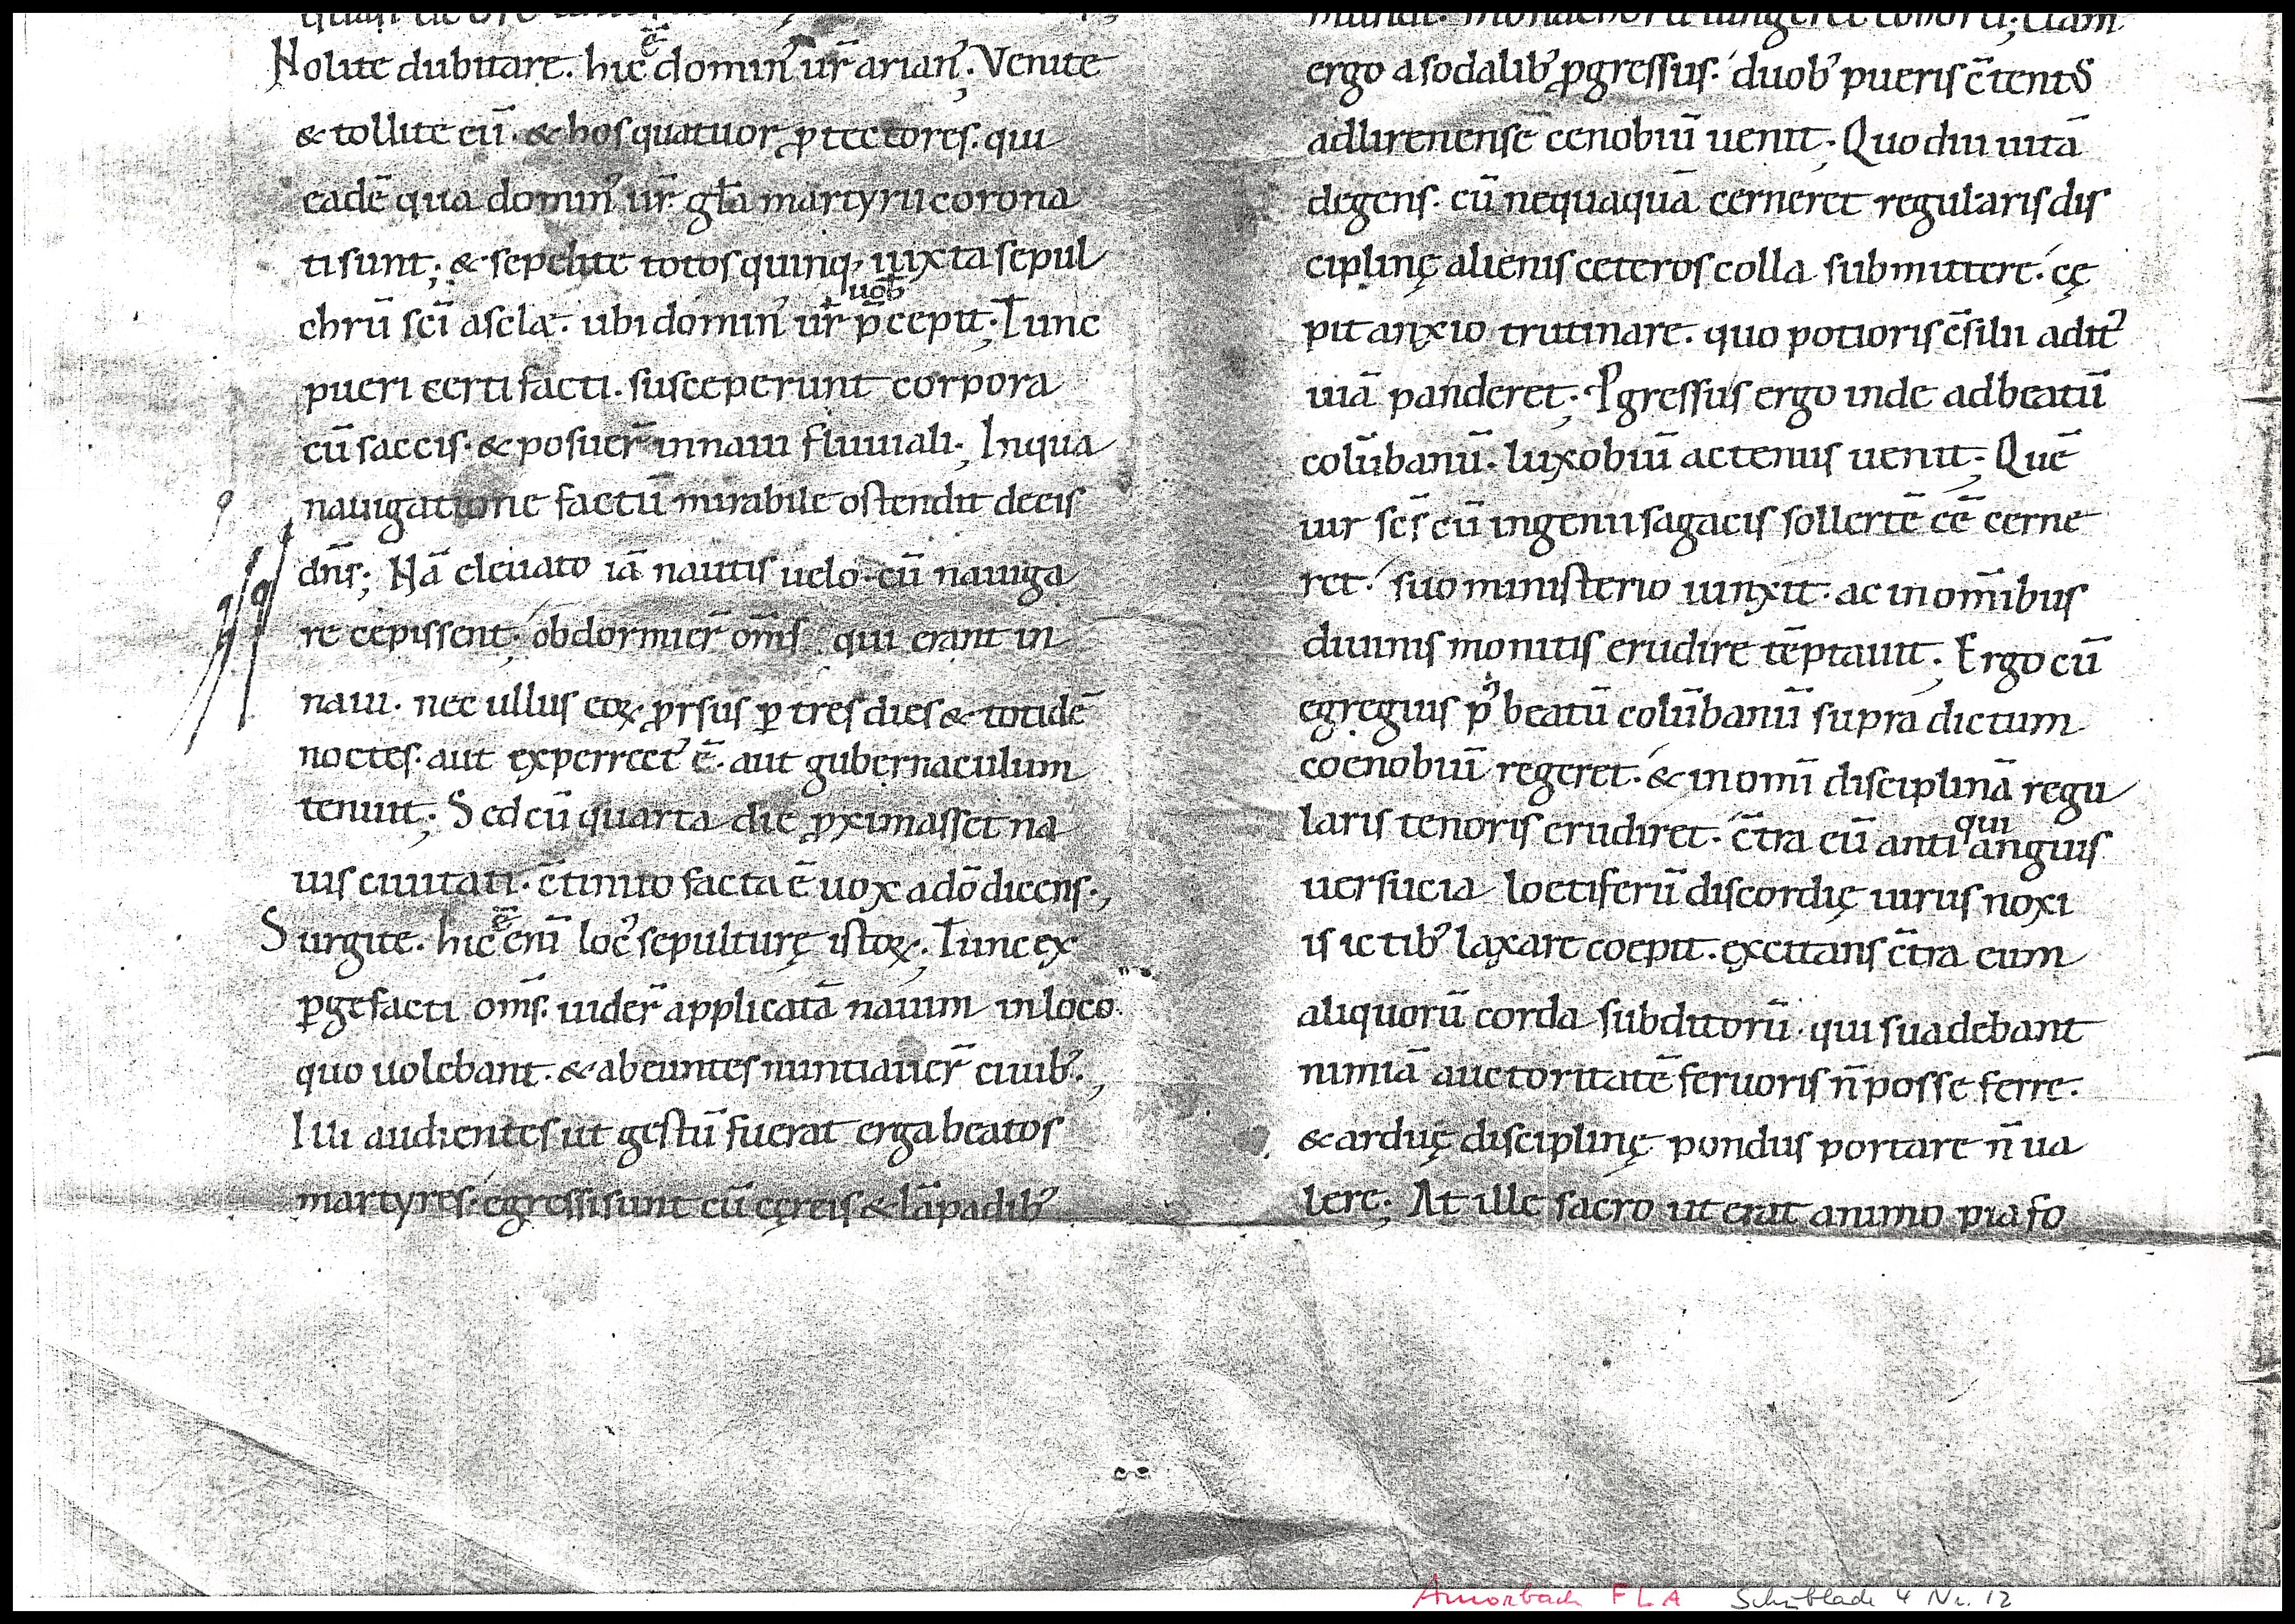 Nolite dubitare. hic ē domin᾿ ur̄ arian᾿; Venite
& tollite eū. & hos quatuor ꝓtectores. qui
eadē qua domin᾿ ur̄ gła martyrii corona
ti sunt; & sepelite totos quinq; iuxta sepul
chrū scī asclæ. ubi domin᾿ ur̄ uob̄ p̄cepit; Tunc
pueri certi facti. susceperunt corpora
cū saccis. & posuer̄ in naui fluuiali; In qua
nauigatione factū mirabile ostendit deeis
dn̄s; Nā eleuato iā nautis uelo. cū nauiga
re cepissent; obdormier̄ om̄s qui erant in
naui. nec ullus eoꝝ ꝓrsus ꝑ tres dies & totidē
noctes. aut experrect᾿ ē. aut gubernaculum
tenuit; Sed cū quarta die ꝓximasset na
uis ciuitati. c̄tinuo facta ē uox a dō dicens;
Surgite. hic ē eni̅ loc᾿ sepulturę istoꝝ; Tunc ex
ꝑgefacti om̄s. uider̄ applicatā nauim in loco
quo uolebant. & abeuntes nuntiauer̄ ciuib᾿;
Illi audientes ut gestū fuerat erga beatos
martyres. egressi sunt cū cęreis & lāpadib᾿
ergo a sodalib᾿ ꝓgressus. duob᾿ pueris c̄tentus
ad lirenensē cenobiū uenit; Quo diu uitā
degens. cū nequaquā cerneret regularis dis
ciplinę alienis ceteros colla submittere. cę
pit anxio trutinare. quo potioris c̄silii adit᾿
uiā panderet; Ꝓgressus ergo inde ad beatū
colūbanū. luxobiū actenus uenit; Quē
uir sc̄s cū ingenii sagacis sollertē eē cerne
ret. suo ministerio iunxit. ac in om̄ibus
diuinis monitis erudire tēptauit; Ergo cū
egregius p᾿ beatū colūbanū supra dictum
coenobiū regeret. & in omī disciplinā regu
laris tenoris erudiret. c̄tra eū anti qui anguis
uersucia loetiferū discordię uirus noxi
is ictib᾿ laxare coepit. excitans c̄tra eum
aliquorū corda subditorū. qui suadebant
nimiā auctoritatē feruoris n̄ posse ferre.
& arduę disciplinę pondus portare n̄ ua
lere; At ille sacro ut erat animo pia fo
Amorbach FLA Schublade 4 Nr. 12